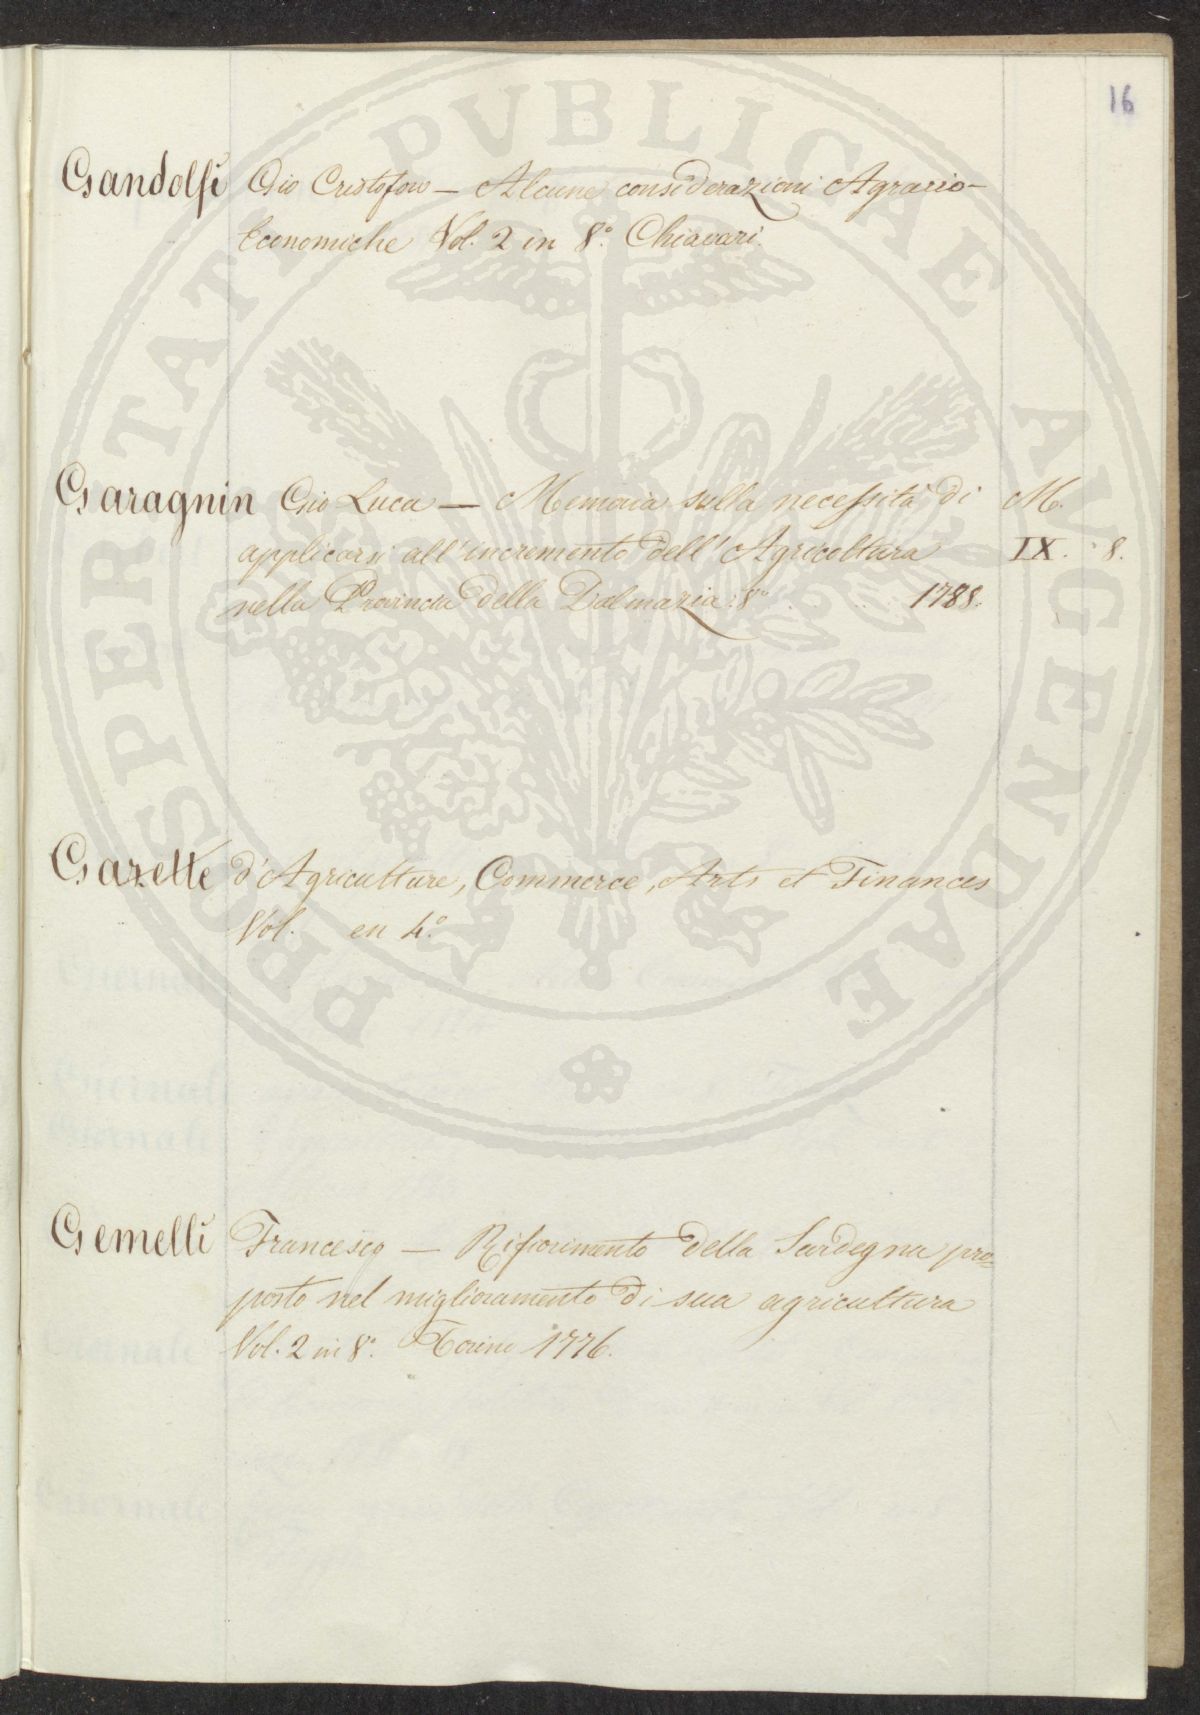 16
Gandolfi Gio Cristoforo — Alcune considerazioni Agrario-
Economiche Vol. 2 in 8.° Chiavari.
Garagnin Gio Luca — Memoria sulla necessità di M.
applicarsi all'incremento dell'Agricoltura IX. 8.
nella Provincia della Dalmazia: 8° 1788.
Gazette d'Agriculture, Commerce, Arts et Finances
Vol. en 4.°
Gemelli Francesco — Rifiorimento della Sardegna pro-
posto nel miglioramento di sua agricultura
Vol. 2 in 8.° Torino 1776.
PROSPERITATI PVBLICAE AVGENDAE